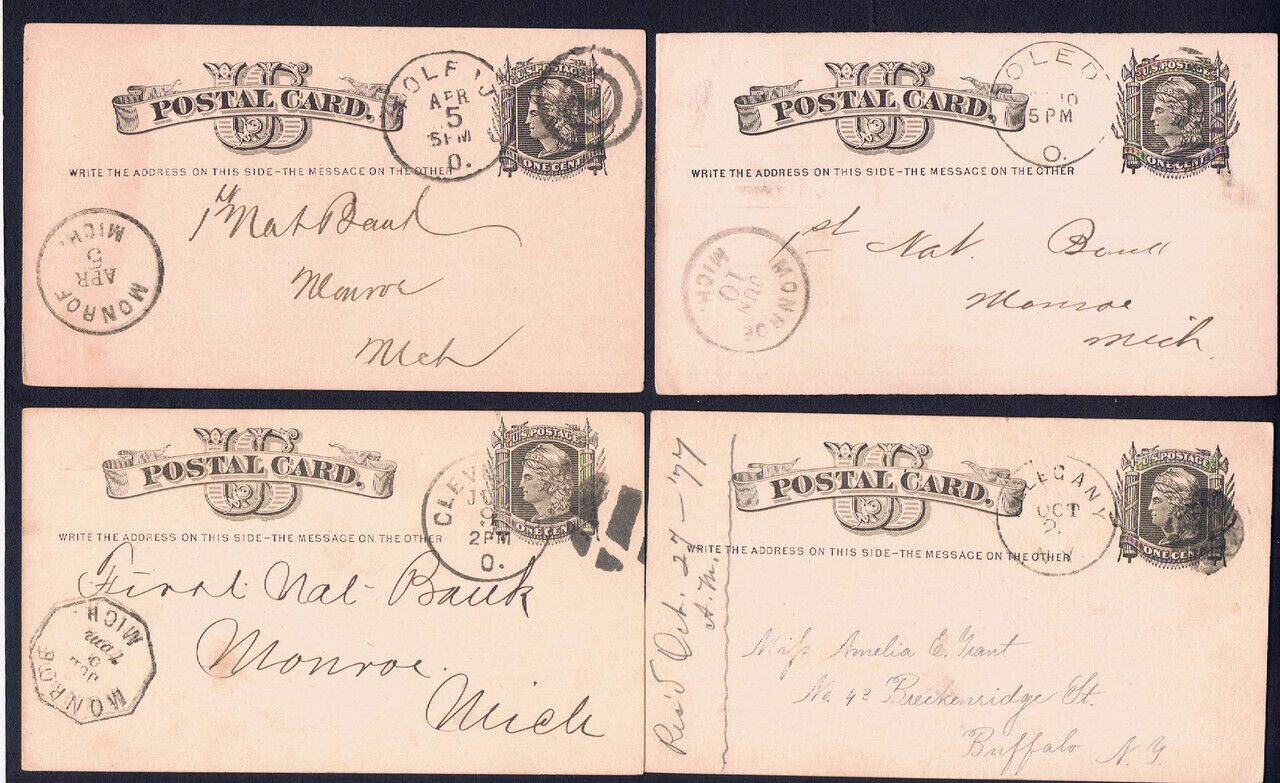 US
POSTAL CARD.
TOLEDO
APR
5
5PM
O.
U.S. POSTAGE
ONE CENT
WRITE THE ADDRESS ON THIS SIDE–THE MESSAGE ON THE OTHER
1st Nat Bank
Monroe
Mich
MONROE
APR
5
MICH.
US
POSTAL CARD.
TOLEDO
10
5 PM
O.
U.S. POSTAGE
ONE CENT
WRITE THE ADDRESS ON THIS SIDE–THE MESSAGE ON THE OTHER
1st Nat. Bank
Monroe
Mich.
MONROE
JUN
10
MICH.
US
POSTAL CARD.
CLEV
2PM
O.
U.S. POSTAGE
ONE CENT
WRITE THE ADDRESS ON THIS SIDE–THE MESSAGE ON THE OTHER
First Nat- Bank
Monroe.
Mich
MONROE
JUL
9
7AM
MICH.
US
POSTAL CARD.
LEGANY
OCT
U.S. POSTAGE
ONE CENT
WRITE THE ADDRESS ON THIS SIDE–THE MESSAGE ON THE OTHER
Rec'd Oct. 27–'77
A.M.
Miss Amelia E. Grant
No. 43 Breckenridge St.
Buffalo N.Y.